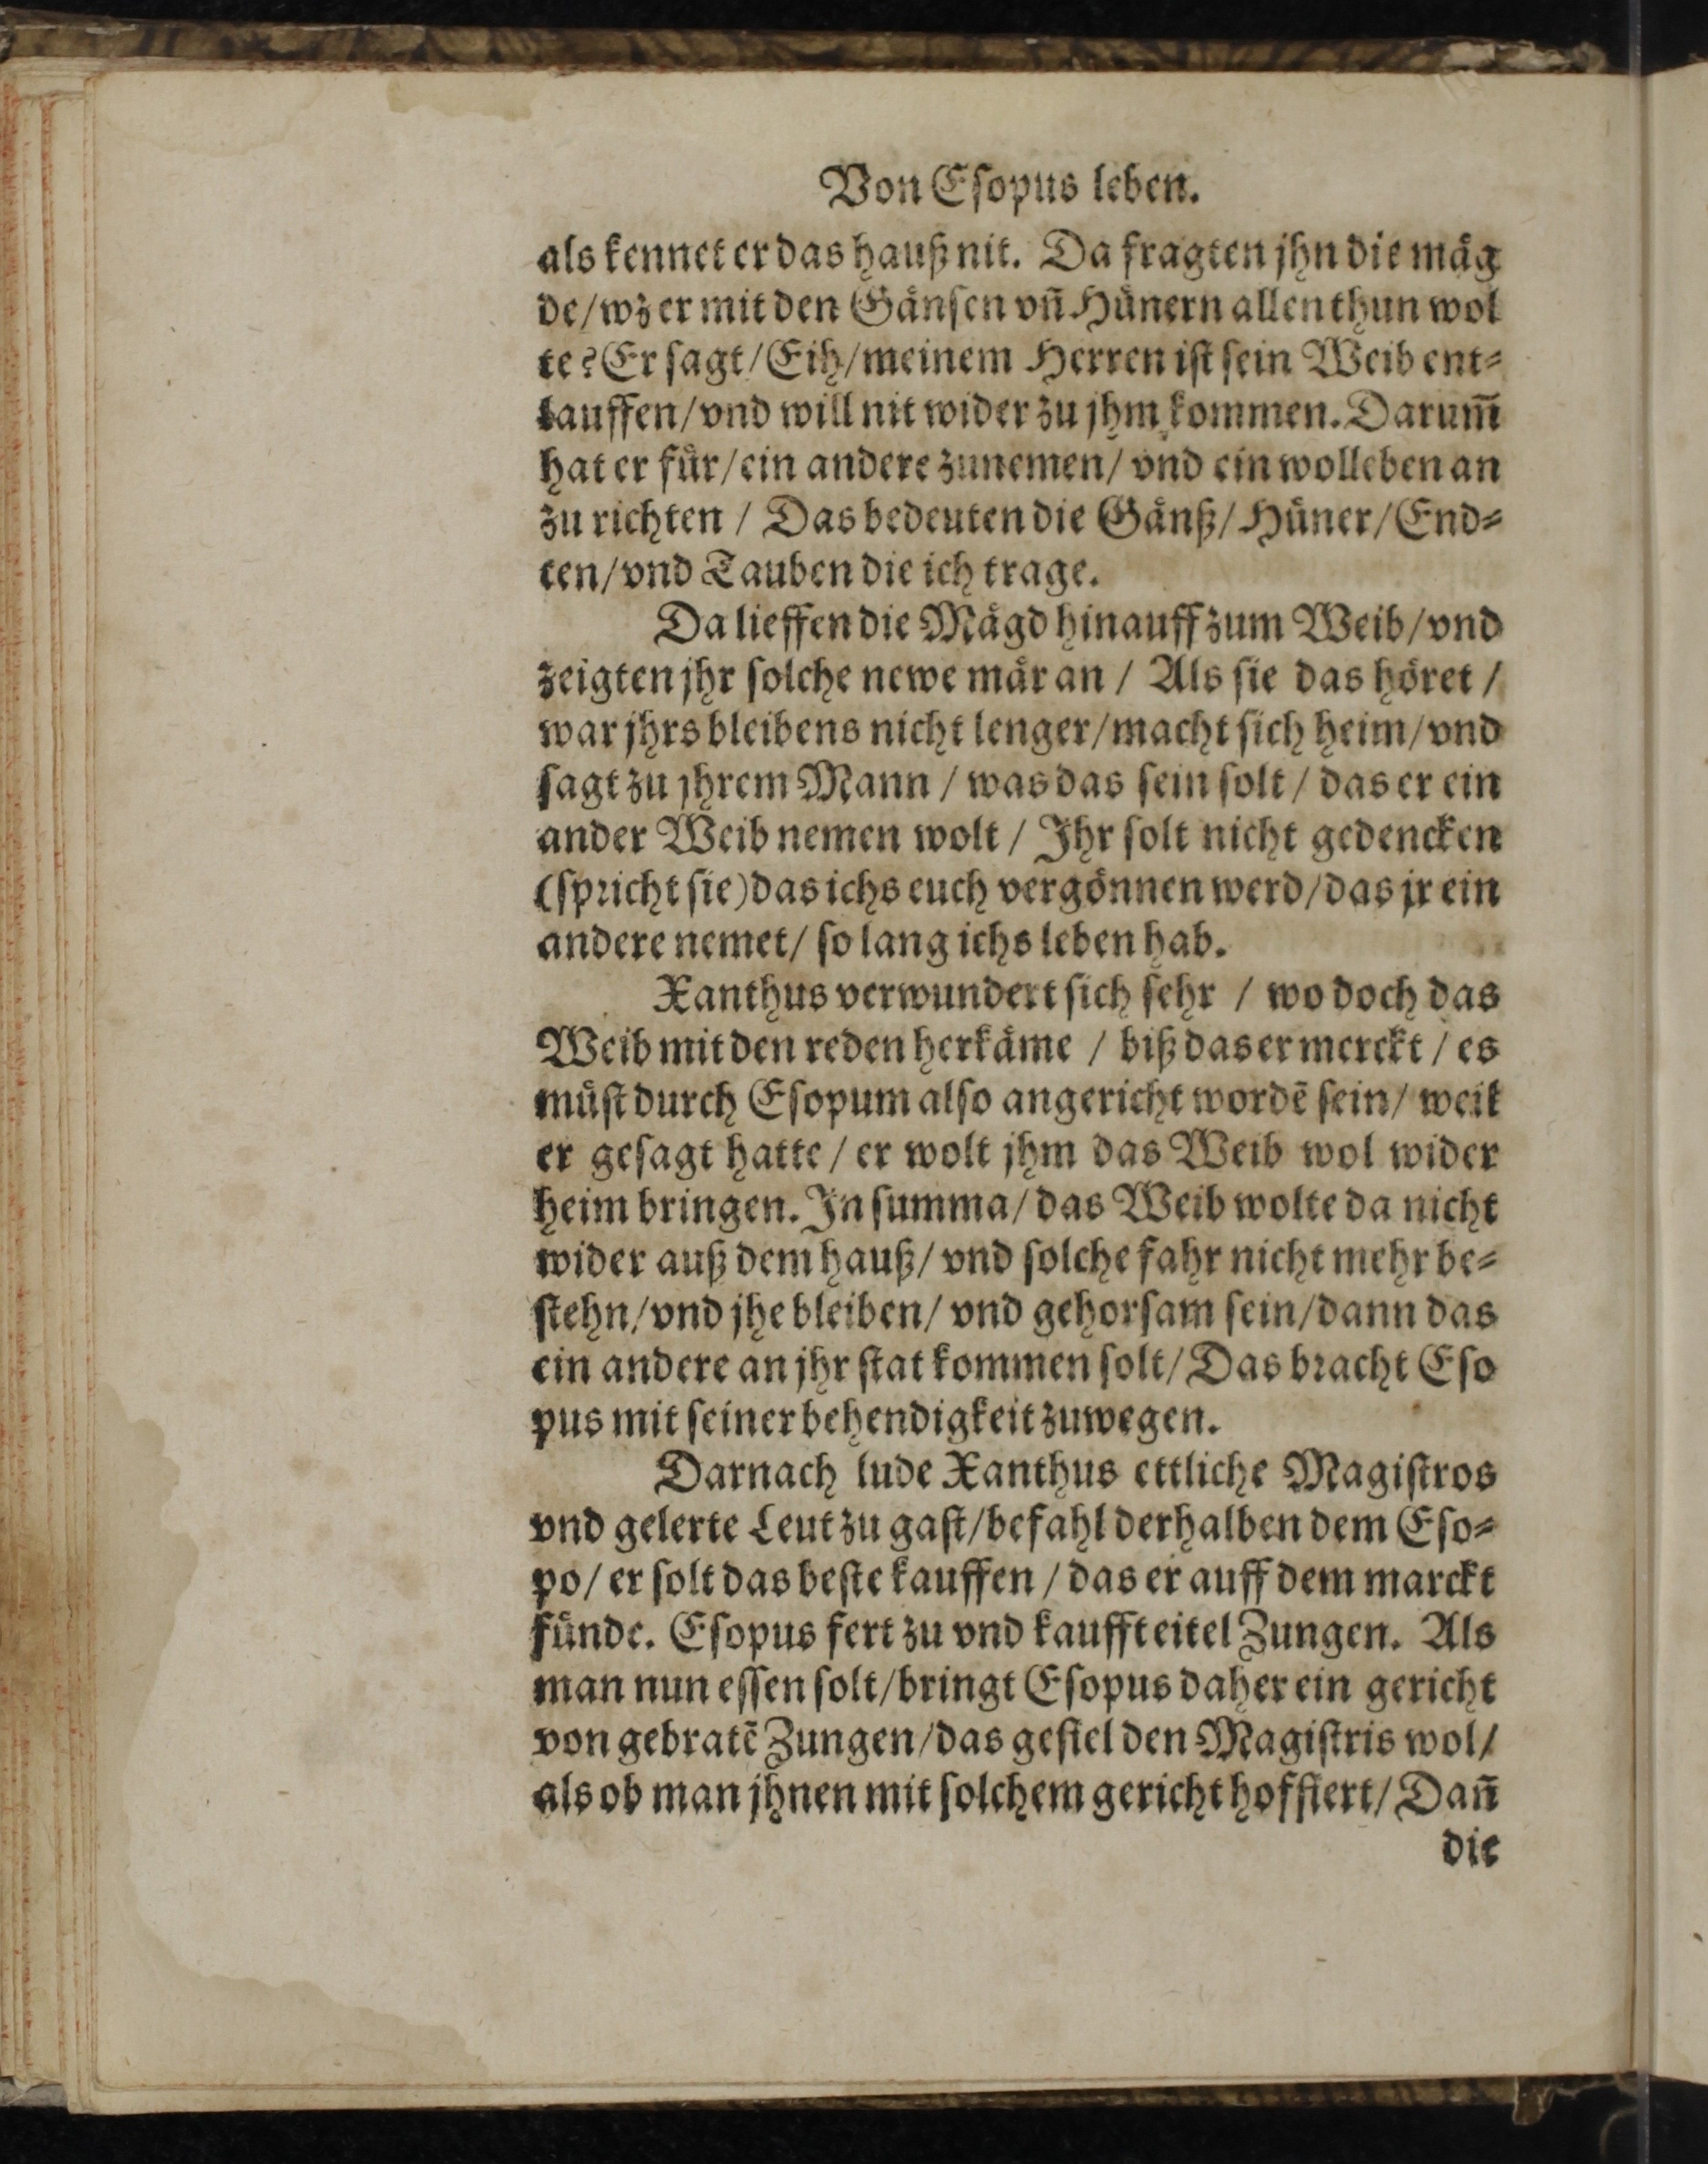 Von Eſopus leben.
als kennet er das hauß nit. Da fragten jhn die maͤg
de/wz er mit den Gaͤnſen vñ Huͤnern allen thun wol
te? Er ſagt/Eih/meinem Herren iſt ſein Weib ent⸗
lauffen/vnd will nit wider zu jhm kommen. Darum̃
hat er fuͤr/ein andere zunemen/ vnd ein wolleben an
zu richten / Das bedeuten die Gaͤnß/Huͤner/End⸗
ten/vnd Tauben die ich trage.
Da lieffen die Maͤgd hinauff zum Weib/vnd
zeigten jhr ſolche newe maͤr an / Als ſie das hoͤret /
war jhrs bleibens nicht lenger/macht ſich heim/vnd
ſagt zu jhrem Mann / was das ſein ſolt / das er ein
ander Weib nemen wolt / Ihr ſolt nicht gedencken
(ſpricht ſie) das ichs euch vergoͤnnen werd/das jr ein
andere nemet/ ſo lang ichs leben hab.
Xanthus verwundert ſich ſehr / wo doch das
Weib mit den reden herkaͤme / biß das er merckt / es
muͤſt durch Eſopum alſo angericht wordẽ ſein/ weil
er geſagt hatte / er wolt jhm das Weib wol wider
heim bringen. In ſumma/ das Weib wolte da nicht
wider auß dem hauß/ vnd ſolche fahr nicht mehr be⸗
ſtehn/vnd jhe bleiben/ vnd gehorſam ſein/dann das
ein andere an jhr ſtat kommen ſolt/ Das bracht Eſo
pus mit ſeiner behendigkeit zuwegen.
Darnach lude Xanthus ettliche Magiſtros
vnd gelerte Leut zu gaſt/befahl derhalben dem Eſo⸗
po/ er ſolt das beſte kauffen / das er auff dem marckt
fuͤnde. Eſopus fert zu vnd kaufft eitel Zungen. Als
man nun eſſen ſolt/bringt Eſopus daher ein gericht
von gebratẽ Zungen/das gefiel den Magiſtris wol/
als ob man jhnen mit ſolchem gericht hoffiert/ Dañ
die